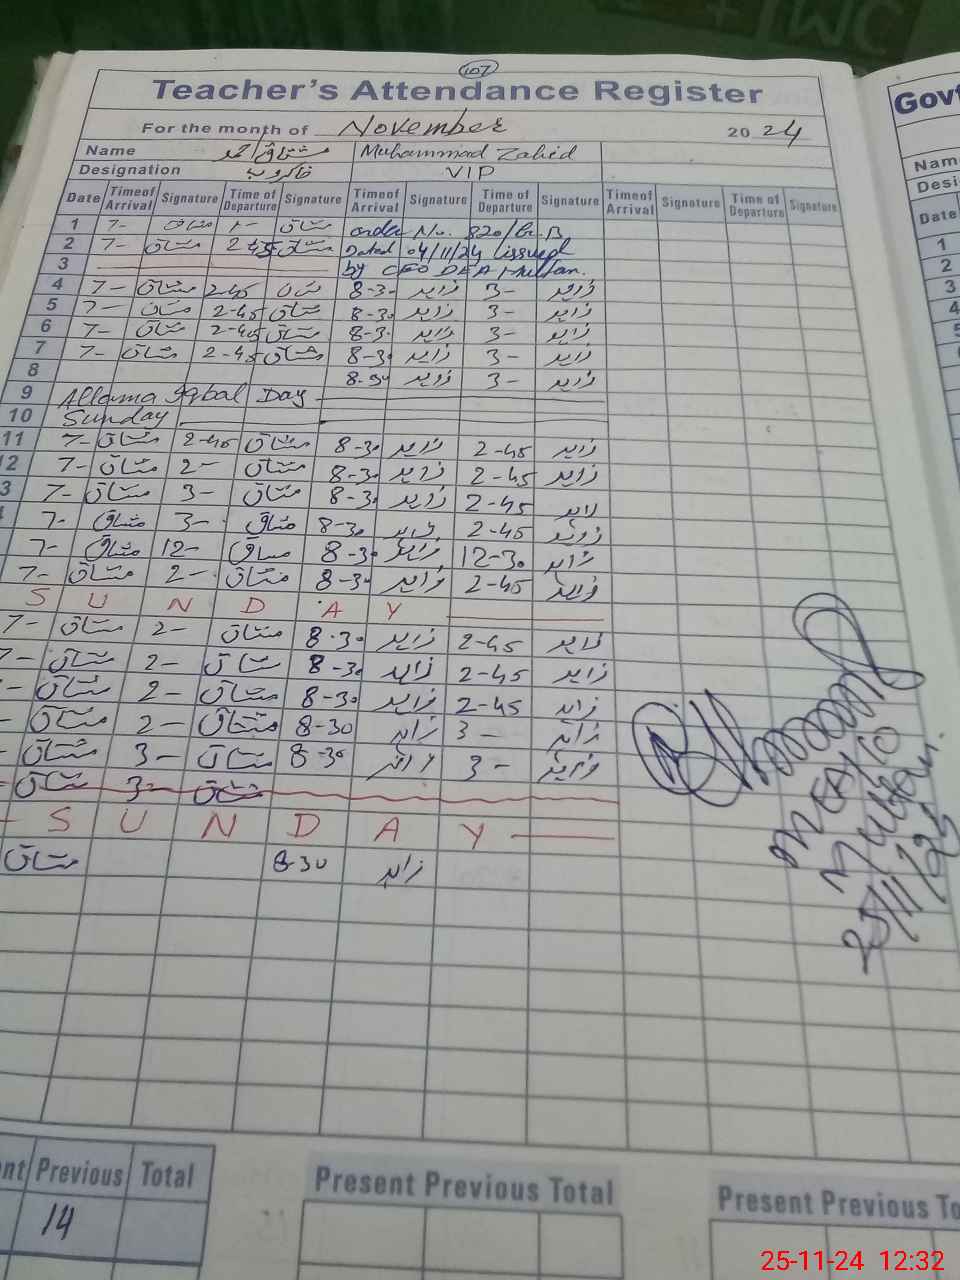 107
Teacher's Attendance Register
Govt
For the month of November 2024
Name مشتاق احمد Muhammad Zahid
Designation خاکروب VIP
Date Time of Arrival Signature Time of Departure Signature Time of Arrival Signature Time of Departure Signature Time of Arrival Signature Time of Departure Signature
1 7- مشتاق مشتاق order No. 320/
2 7- مشتاق 2-45 مشتاق Dated 04/11/24 issued
3 by CEO DEA Multan.
4 7- مشتاق 2-45 8-30 زاہد 3- زاہد
5 7- مشتاق 2-45 مشتاق 8-30 زاہد 3- زاہد
6 7- مشتاق 2-45 مشتاق 8-30 زاہد 3- زاہد
7 7- مشتاق 2-45 مشتاق 8-30 زاہد 3- زاہد
8 8-30 زاہد 3- زاہد
9 Allama Iqbal Day
10 Sunday
11 7- مشتاق 2-45 مشتاق 8-30 زاہد 2-45 زاہد
12 7- مشتاق 2- مشتاق 8-30 زاہد 2-45 زاہد
3 7- مشتاق 3- مشتاق 8-30 زاہد 2-45 زاہد
7- مشتاق 3- مشتاق 8-30 زاہد 2-45 زاہد
7- مشتاق 12- مشتاق 8-30 زاہد 12-30 زاہد
7- مشتاق 2- مشتاق 8-30 زاہد 2-45 زاہد
S U N D A Y
7- مشتاق 2- مشتاق 8-30 زاہد 2-45 زاہد
7- مشتاق 2- مشتاق 8-30 زاہد 2-45 زاہد
- مشتاق 2- مشتاق 8-30 زاہد 2-45 زاہد
- مشتاق 2- مشتاق 8-30 زاہد 3- زاہد
- مشتاق 3- مشتاق 8-30 زاہد 3- زاہد
- مشتاق 3- مشتاق
S U N D A Y
مشتاق 8-30 زاہد
Multan
Name
Date
1
2
3
4
5
6
7
8
9
Previous Total
14
Present Previous Total
Present Previous
25-11-24 12:32